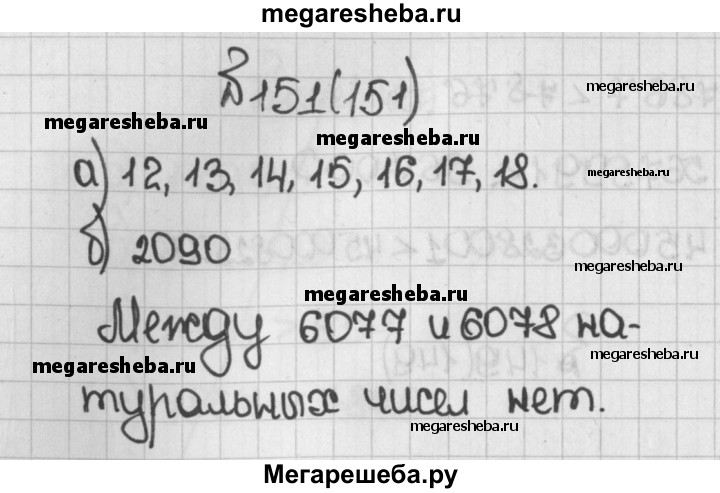 megaresheba.ru
№151(151)
megaresheba.ru
megaresheba.ru
megaresheba.ru
а) 12, 13, 14, 15, 16, 17, 18.
megaresheba.ru
б) 2090
megaresheba.ru
megaresheba.ru
Между 6077 и 6078 на-
megaresheba.ru
megaresheba.ru
туральных чисел нет.
megaresheba.ru
Мегарешеба.ру